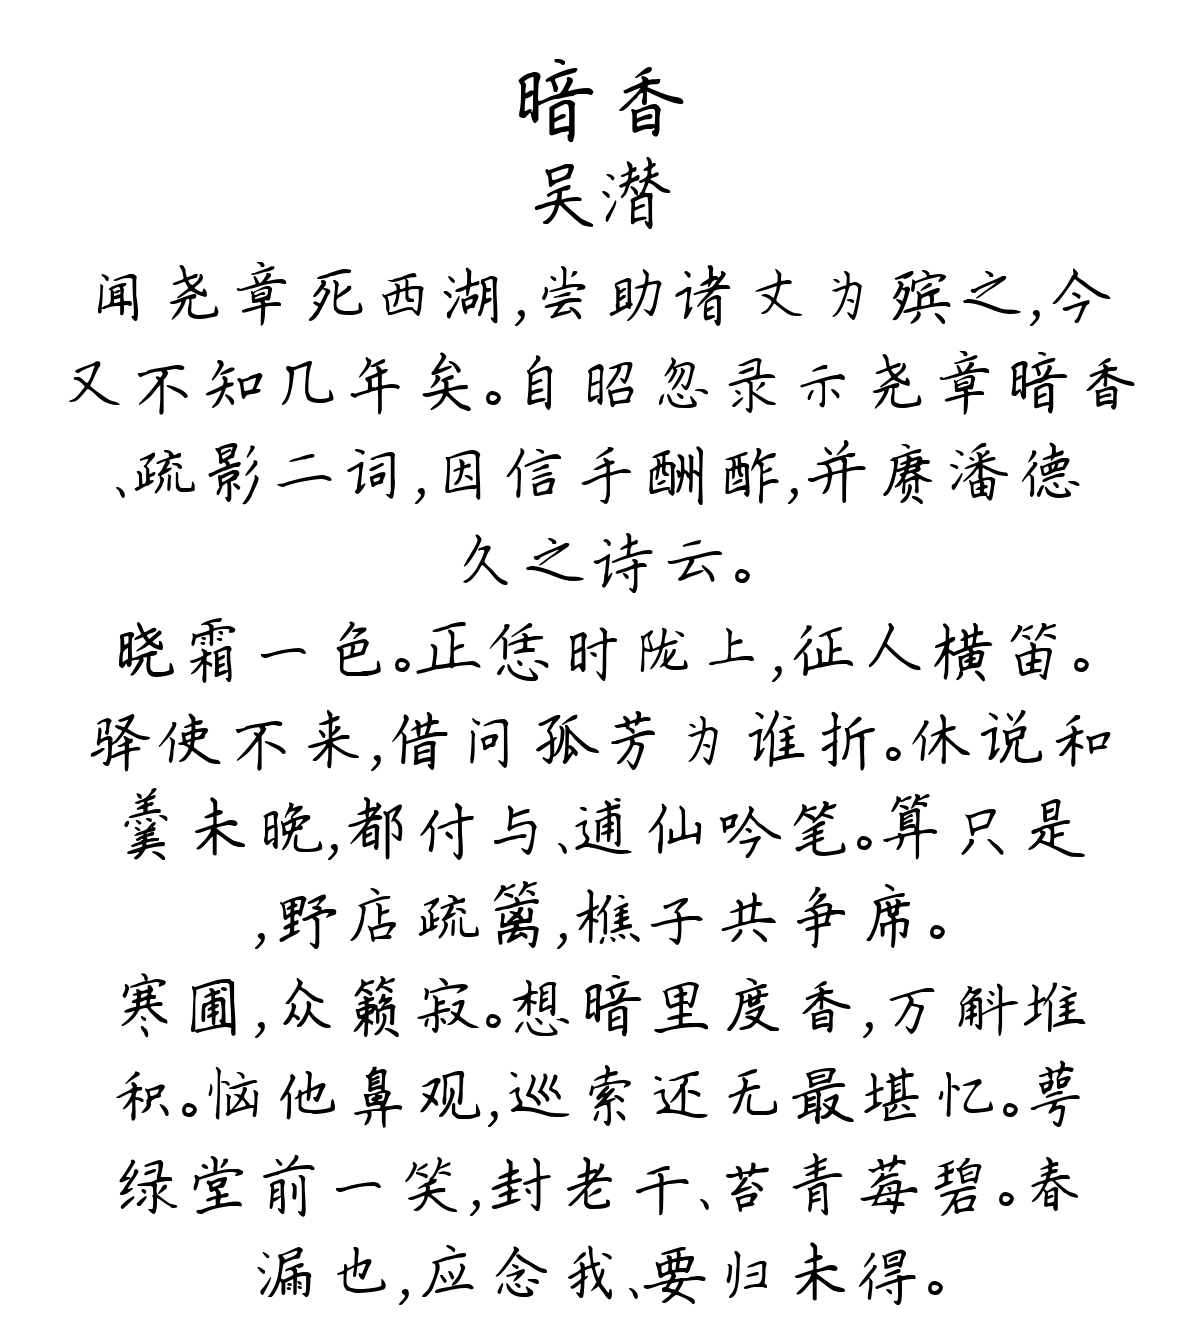 暗香
吴潜
闻尧章死西湖,尝助诸丈为殡之,今
又不知几年矣。自昭忽录示尧章暗香
、疏影二词,因信手酬酢,并赓潘德
久之诗云。
晓霜一色。正恁时陇上,征人横笛。
驿使不来,借问孤芳为谁折。休说和
羹未晚,都付与、逋仙吟笔。算只是
,野店疏篱,樵子共争席。
寒圃,众籁寂。想暗里度香,万斛堆
积。恼他鼻观,巡索还无最堪忆。萼
绿堂前一笑,封老干、苔青莓碧。春
漏也,应念我、要归未得。